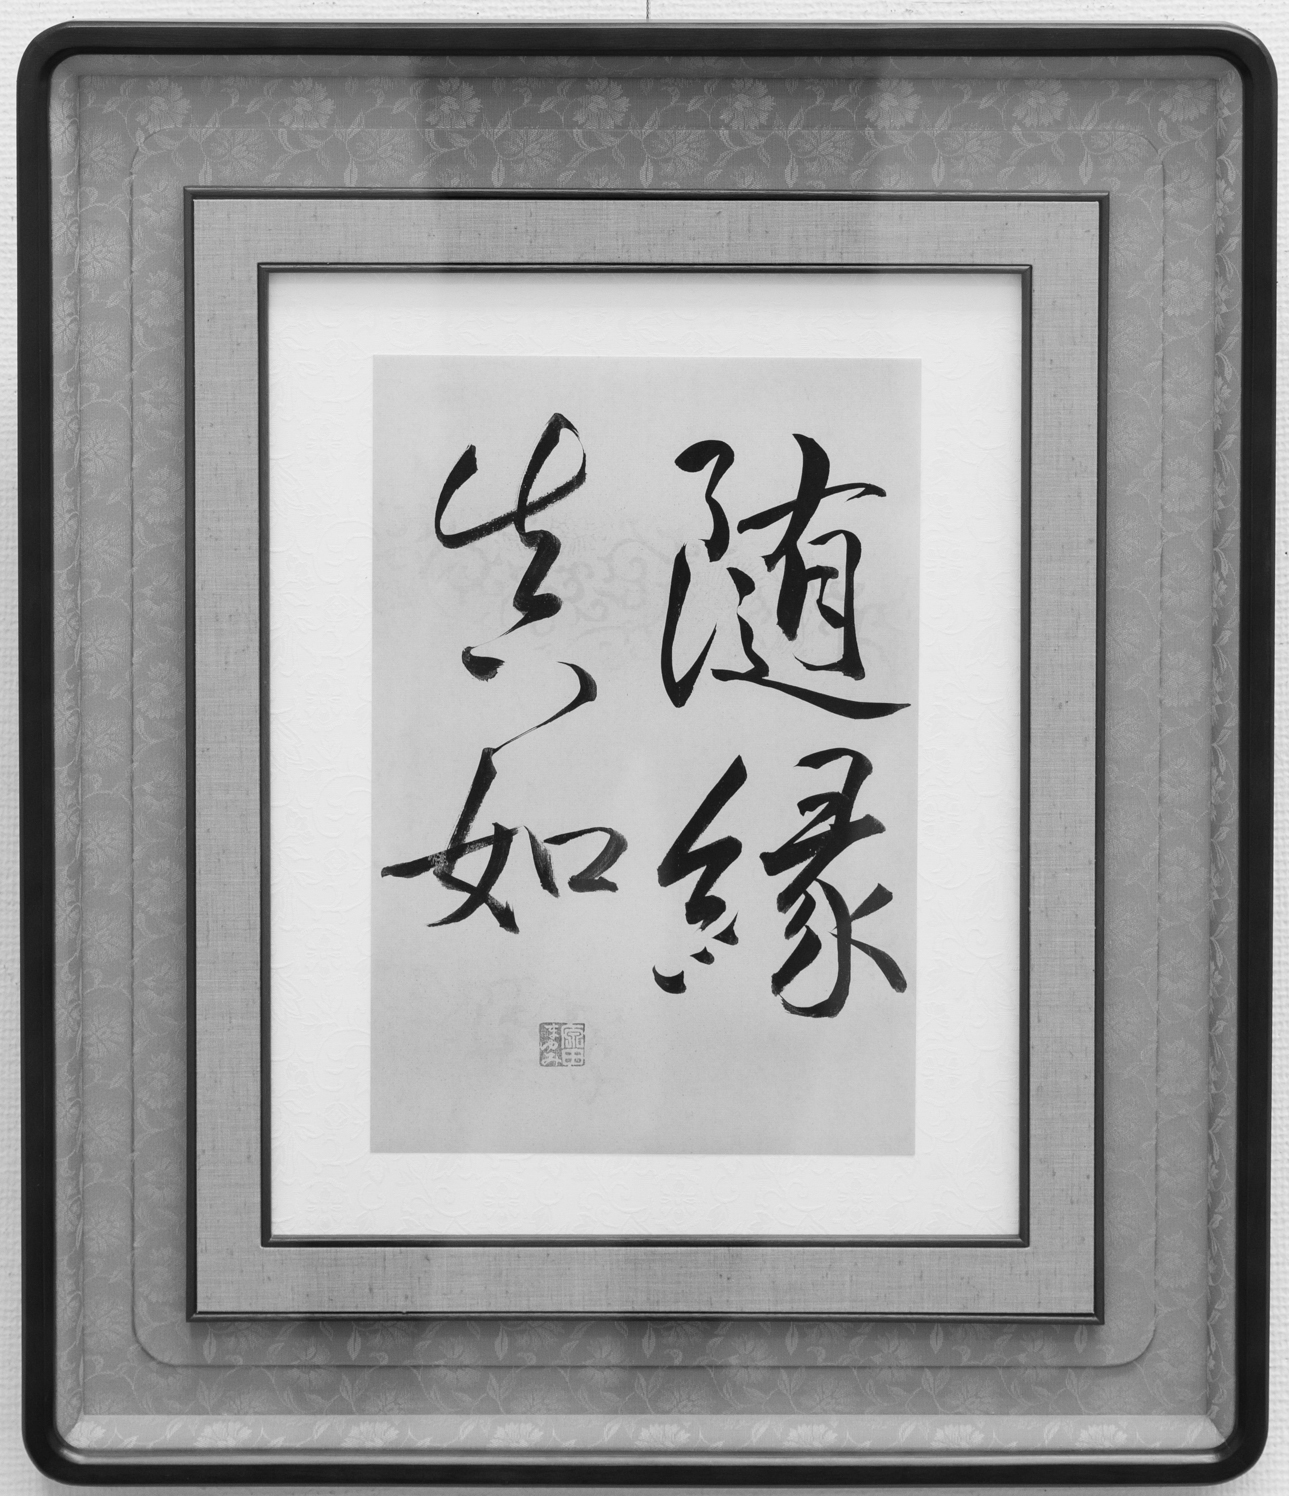 随縁
真如